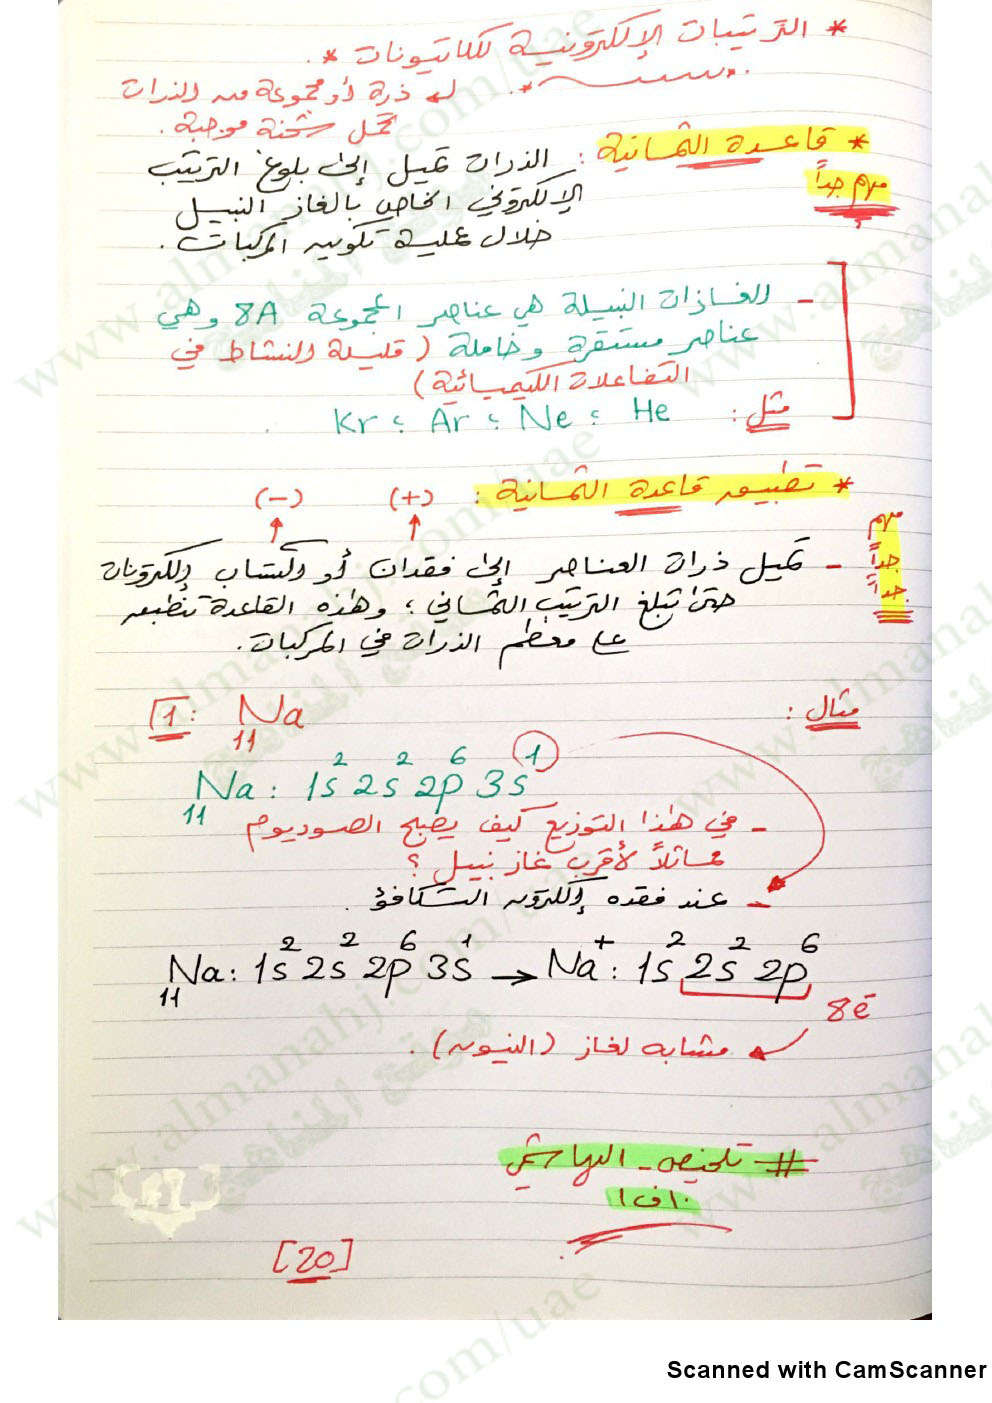 * الترتيبات الإلكترونية للكاتيونات *.
ذرة أو مجموعة من الذرات
تحمل شحنة موجبة.
* قاعدة الثمانية : الذرات تميل إلى بلوغ الترتيب
مهم جداً
الإلكتروني الخاص بالغاز النبيل
خلال عملية تكوين المركبات.
- الغازات النبيلة هي عناصر المجموعة 8A وهي
عناصر مستقرة وخاملة (قليلة النشاط في
التفاعلات الكيميائية)
مثل : He ؛ Ne ؛ Ar ؛ Kr
* تطبيق قاعدة الثمانية :
(+) (-)
مهم
جداً
جداً
- تميل ذرات العناصر إلى فقدان أو اكتساب إلكترونات
حتى تبلغ الترتيب الثماني ؛ وهذه القاعدة تنطبق
على معظم الذرات في المركبات.
مثال :
1 : ₁₁Na
₁₁Na : 1s² 2s² 2p⁶ 3s¹
- في هذا التوزيع كيف يصبح الصوديوم
مماثلاً لأقرب غاز نبيل ؟
- عند فقده إلكترون التكافؤ.
₁₁Na : 1s² 2s² 2p⁶ 3s¹ → Na⁺ : 1s² 2s² 2p⁶
8ē
مشابه لغاز (النيون).
# تلخيص - الهاشمي
١٠ف١
[20]
www.almanahj.com/uae
موقع المناهج
Scanned with CamScanner